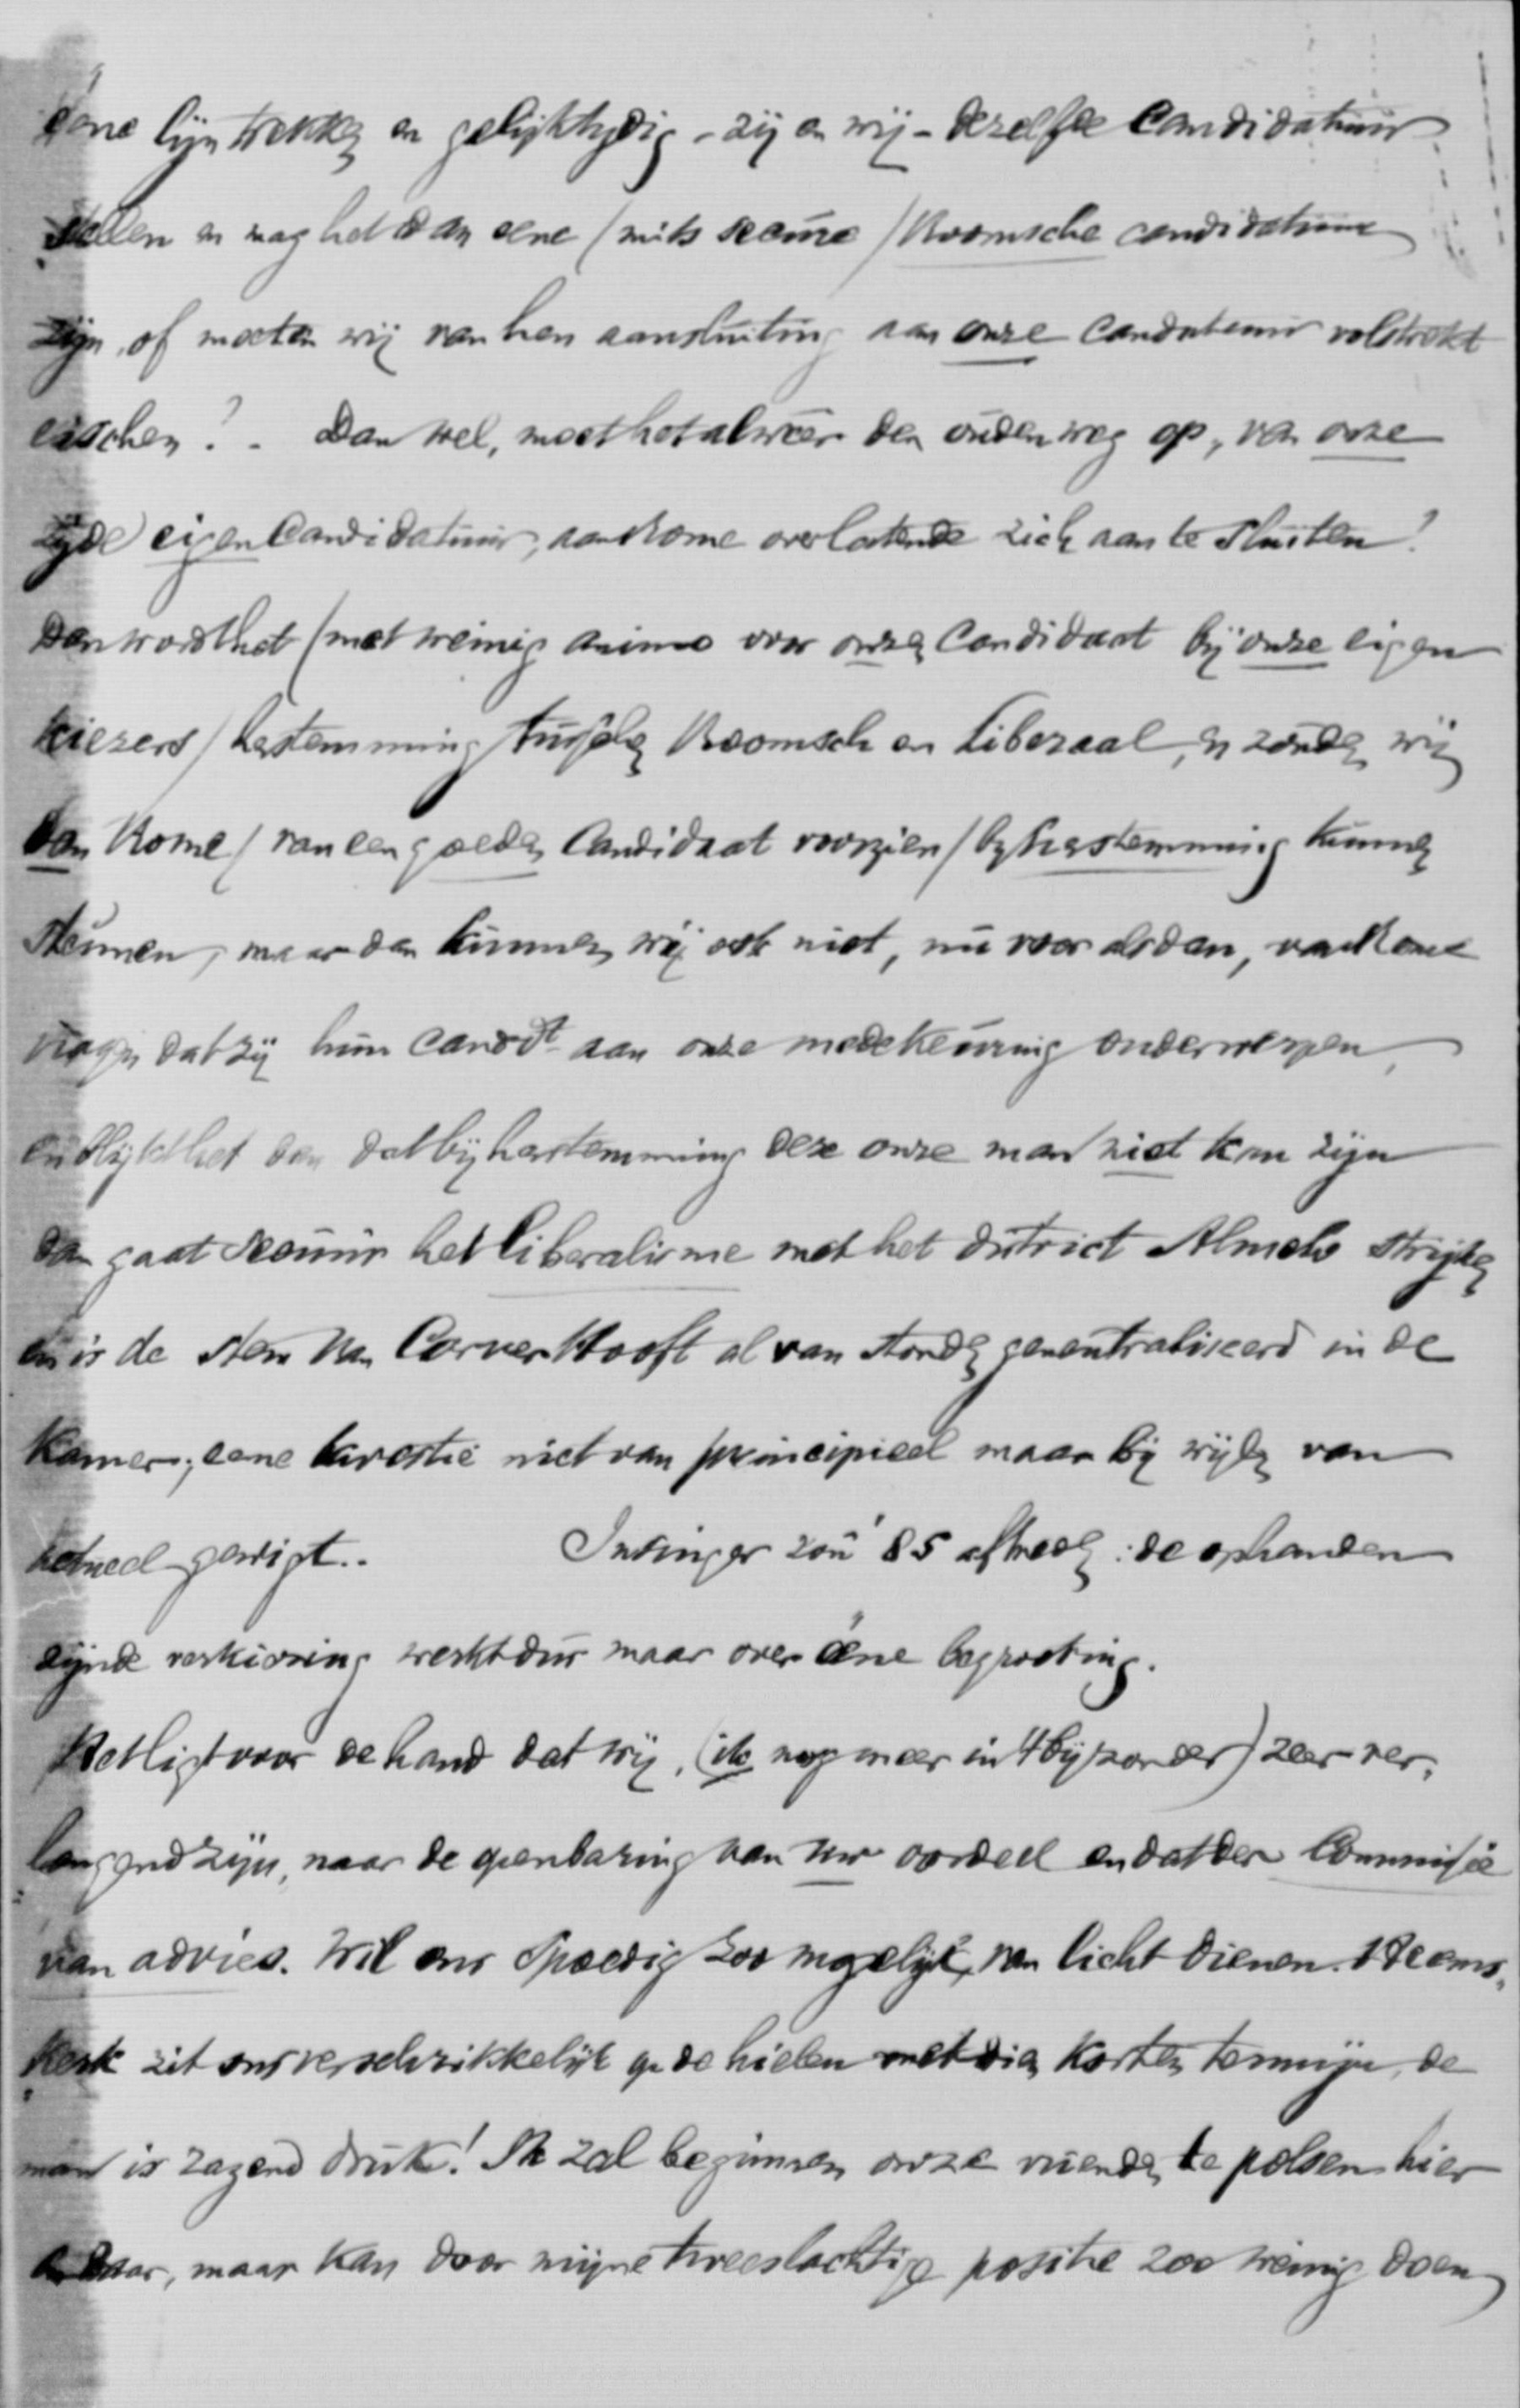 eene lijn trekken en gelijktydig - zij en wij - dezelfde Candidatuur
stellen en mag het dan eene (mits secure) Roomsche candidatuur
zijn, of moeten wij van hen aansluiting aan onze Candidatuur volstrekt
eisschen? - Dan wel, moet het alweer den ouden weg op, van onze
zijde eigen Candidatuur, aan Rome overlatende zich aan te sluiten?
Dan wordt het (met weinig animo voor onzen Candidaat bij onze eigen
kiezers) herstemming tusschen Roomsch en Liberaal, en zouden wij
dan Rome (van een goeden Candidaat voorzien) by herstemming kunnen
steunen, maar dan kunnen wij ook niet, nu voor alsdan, van Rome
vragen dat zij hun Candidt aan onze medekeuring onderwerpen,
en blijkt het dan dat bij herstemming deze onze man niet kan zijn
dan gaat secuur het liberalisme met het district Almelo strijken
en is de stem van Corver Hooft al van stonden geneutraliseerd in de
Kamer; eene kwestie niet van principieel maar bij wijlen van
actueel gewigt.. Insinger zou '85 aftreden: de ophanden
zijnde verkiezing werkt dus maar over ééne begrooting.
Het ligt voor de hand dat wij, (ik nog meer in 't byzonder) zeer ver„
langend zijn, naar de openbaring van uw oordeel en dat der Commissie
van advies. Wil ons spoedig zoo mogelijk, van licht dienen. Heems„
kerk zit ons verschrikkelijk op de hielen met dien korten termijn, de
man is zagend druk! Ik zal beginnen onze vrienden te polsen hier
en daar, maar kan door mijne tweeslachtige positie zoo weinig doen